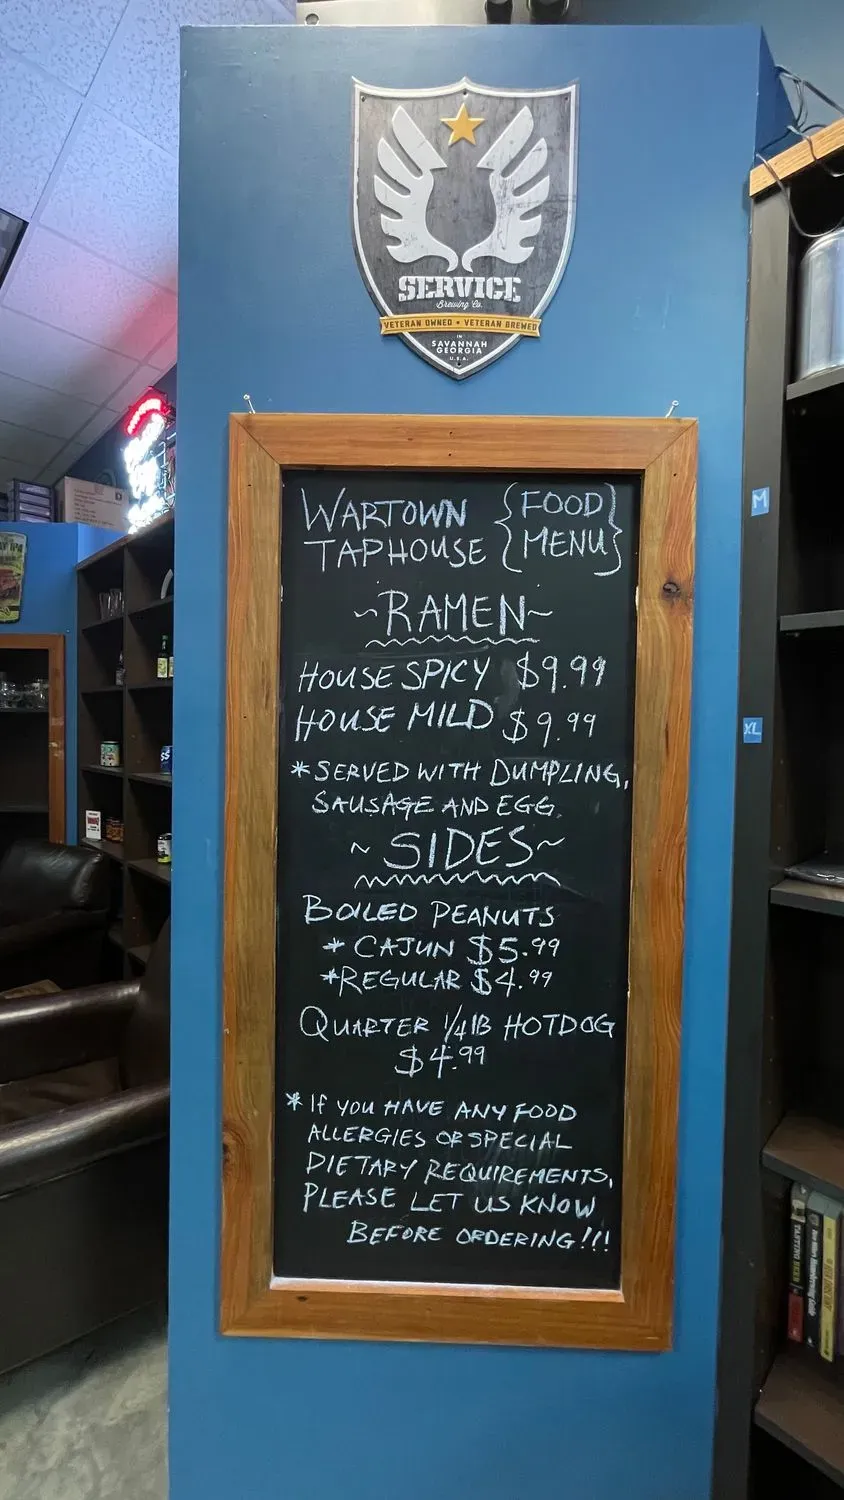 SERVICE
Brewing Co.
VETERAN OWNED • VETERAN BREWED
IN
SAVANNAH
GEORGIA
U.S.A.
WARTOWN {FOOD
TAPHOUSE MENU}
~RAMEN~
HOUSE SPICY $9.99
HOUSE MILD $9.99
*SERVED WITH DUMPLING,
SAUSAGE AND EGG
~SIDES~
BOILED PEANUTS
* CAJUN $5.99
*REGULAR $4.99
QUARTER 1/4 lB HOTDOG
$4.99
* If YOU HAVE ANY FOOD
ALLERGIES OR SPECIAL
DIETARY REQUIREMENTS,
PLEASE LET US KNOW
BEFORE ORDERING!!!
M
XL
TASTING BEER